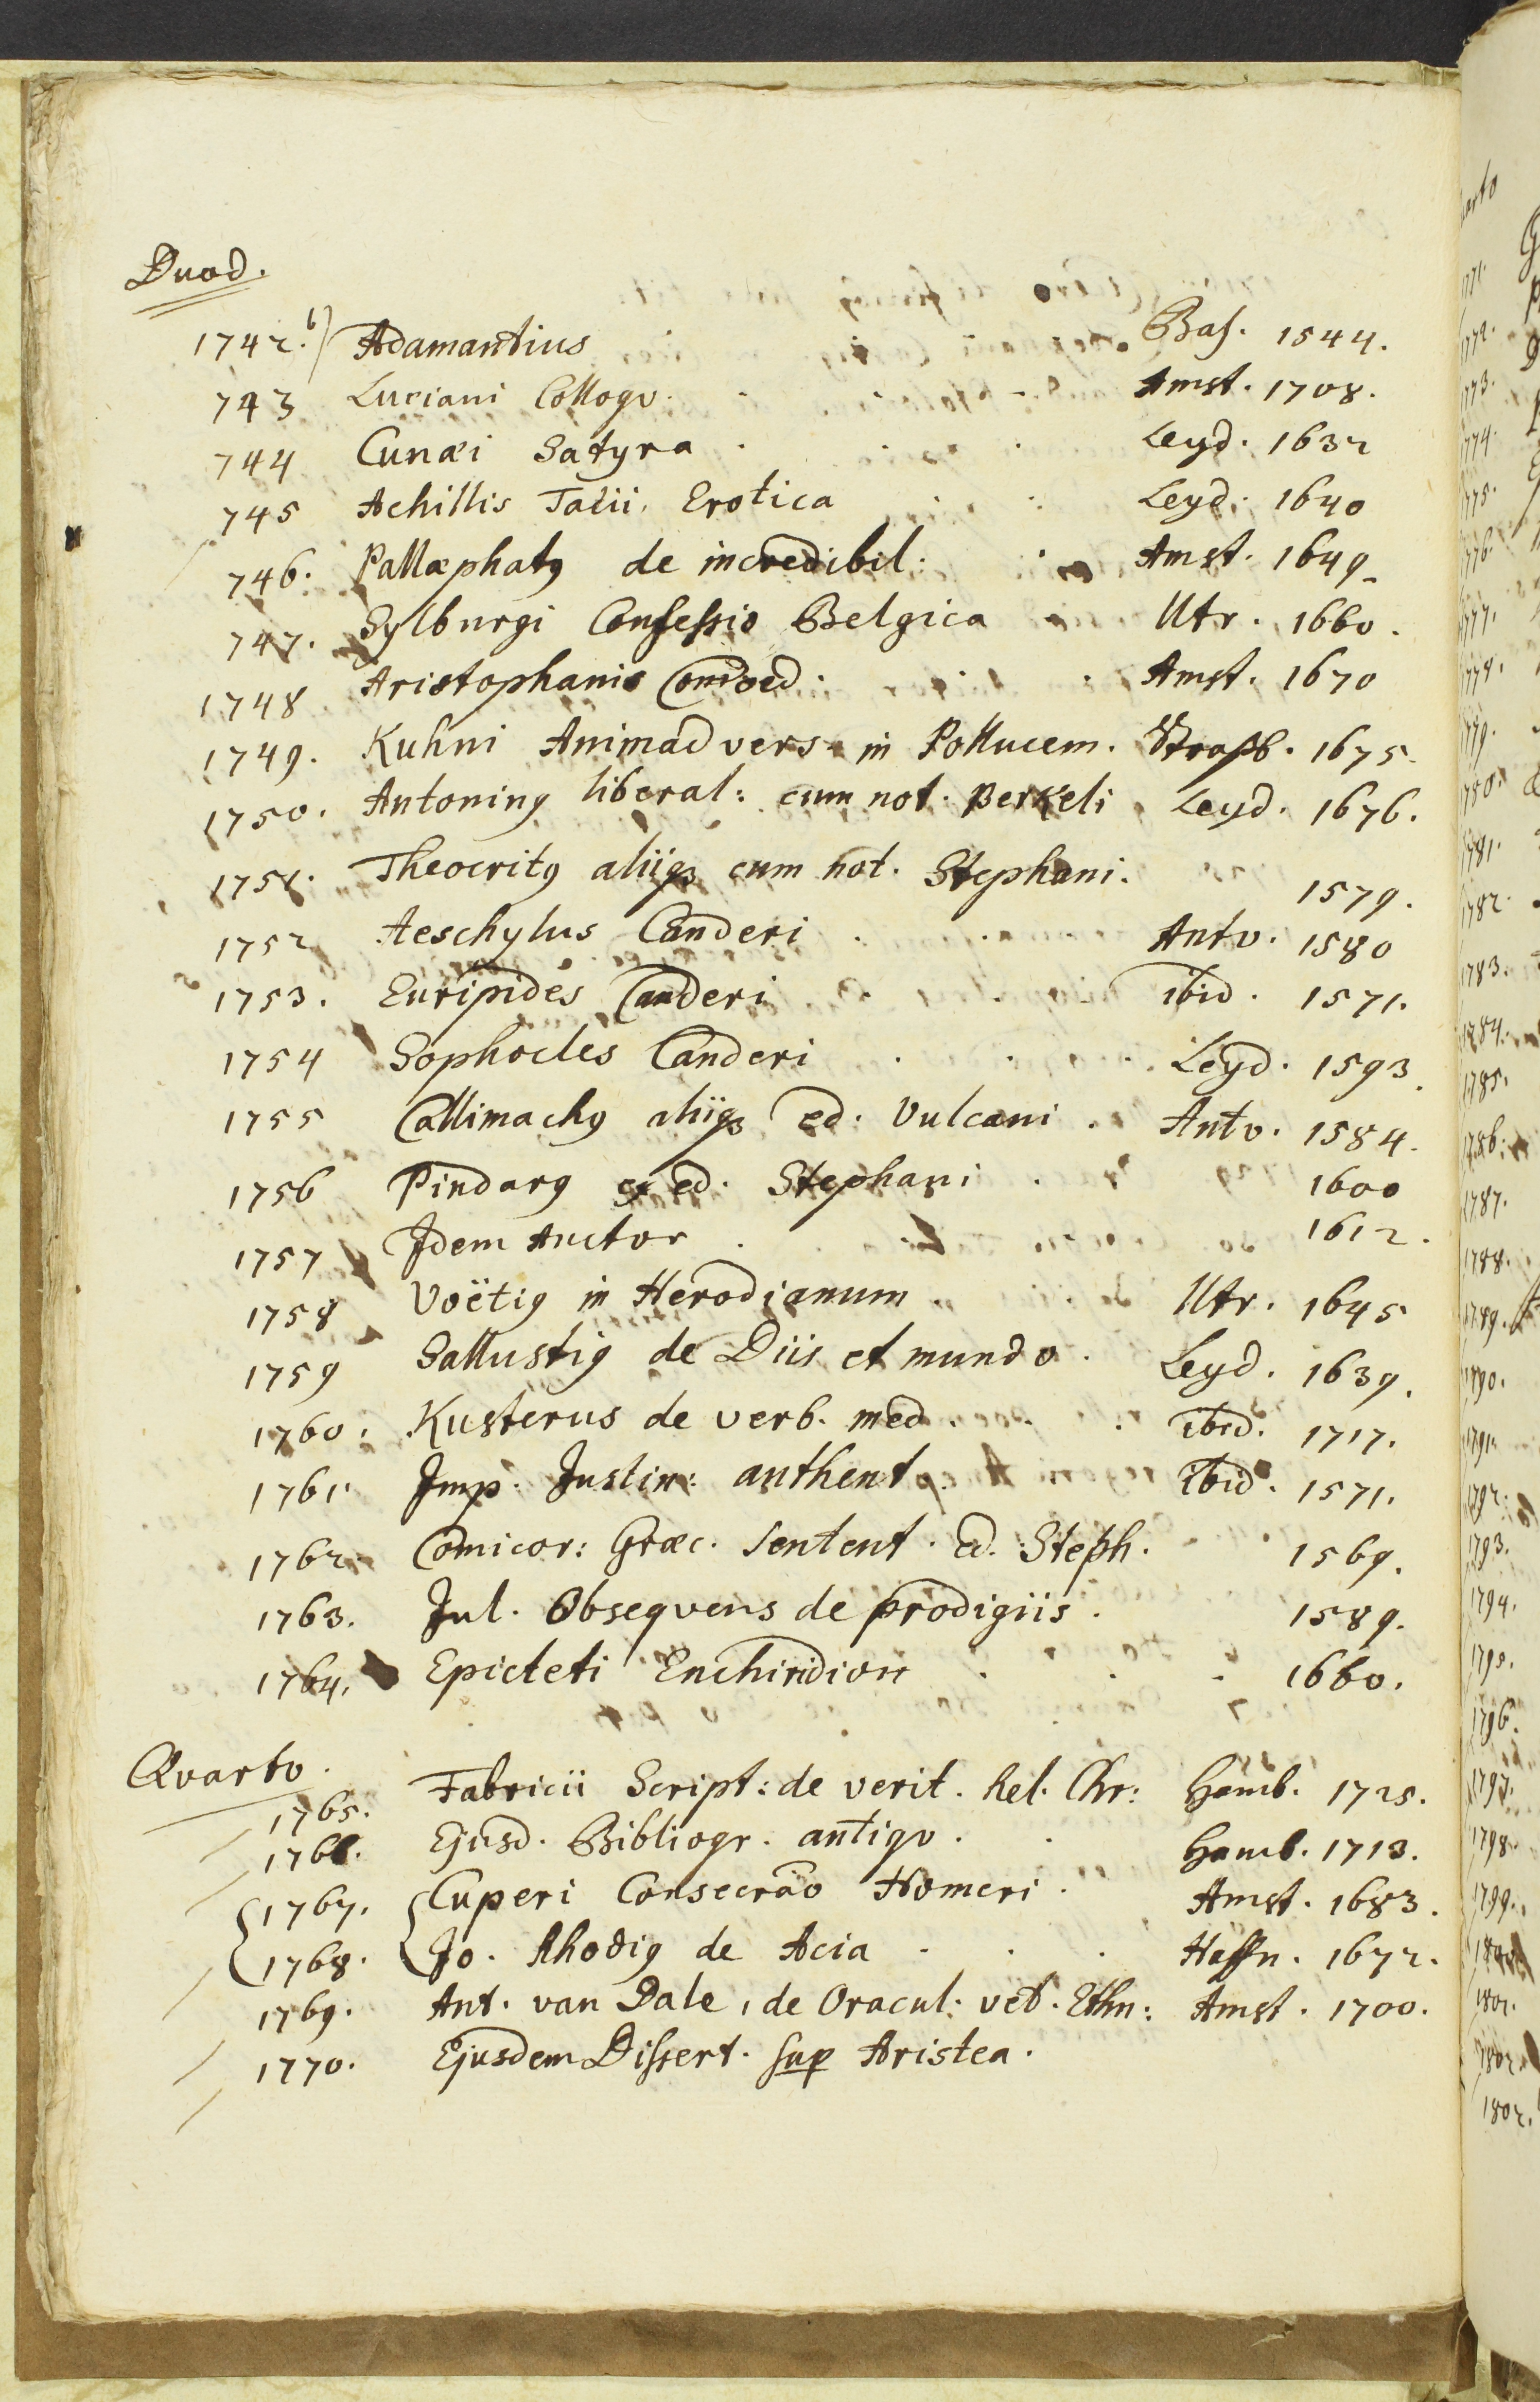 Duod.
1742.b) Adamantius Bas. 1544.
743 Luciani Colloqv. Amst. 1708.
744 Cunæi Satyra . Leyd. 1632
745 Achillis Tatii, Erotica Leyd. 1640
746. Pallæphatꝰ de incredibil: Amst. 1649
747. Sylburgi Confessio Belgica Utr. 1660.
1748 Aristophanis Comoed. Amst. 1670
1749. Kuhni Animadvers. in Pollucem. Strasb. 1675.
1750. Antoninꝰ liberal: cum not. Berkeli Leyd. 1676.
1751. Theocritꝰ aliiqꝫ cum not. Stephani. 1579.
1752 Aeschylus Canderi . Antv. 1580
1753. Euripides Canderi . ibid. 1571.
1754 Sophocles Canderi . Leyd. 1593.
1755 Callimachꝰ aliiqꝫ ed. Vulcani . Antv. 1584.
1756 Pindarꝰ ex ed. Stephani . 1600
1757 Idem Auctor . 1612.
1758 Voëtiꝰ in Herodianum . Utr. 1645
1759 Sallustiꝰ de Diis et mundo . Leyd. 1639.
1760. Kusterus de verb. med. ibid. 1717.
1761 Imp. Justin: authent. ibid. 1571.
1762 Comicor: Græc. Sentent. ed. Steph. 1569.
1763. Jul. Obseqvens de prodigiis . 1589.
1764. Epicteti Enchiridion . 1660.
Qvarto.
1765. Fabricii Script: de verit. Rel. Chr: Hamb. 1725.
1766. Ejusd. Bibliogr. antiqv. Hamb. 1713.
1767. Cuperi Consecrāo Homeri . Amst. 1683.
1768. Jo. Rhodiꝰ de Acia . Haffn. 1672.
1769. Ant. van Dale, de Oracul: vet. Ethn: Amst. 1700.
1770. Ejusdem Dissert. sup Aristea.
arto
1771.
1772.
1773.
1774.
1775.
1776.
1777.
1778.
1779.
1780.
1781.
1782.
1783.
1784.
1785.
1786.
1787.
1788.
1789.
1790.
1791.
1792.
1793.
1794.
1795.
1796.
1797.
1798.
1799.
1800.
1801.
1802.
1802.